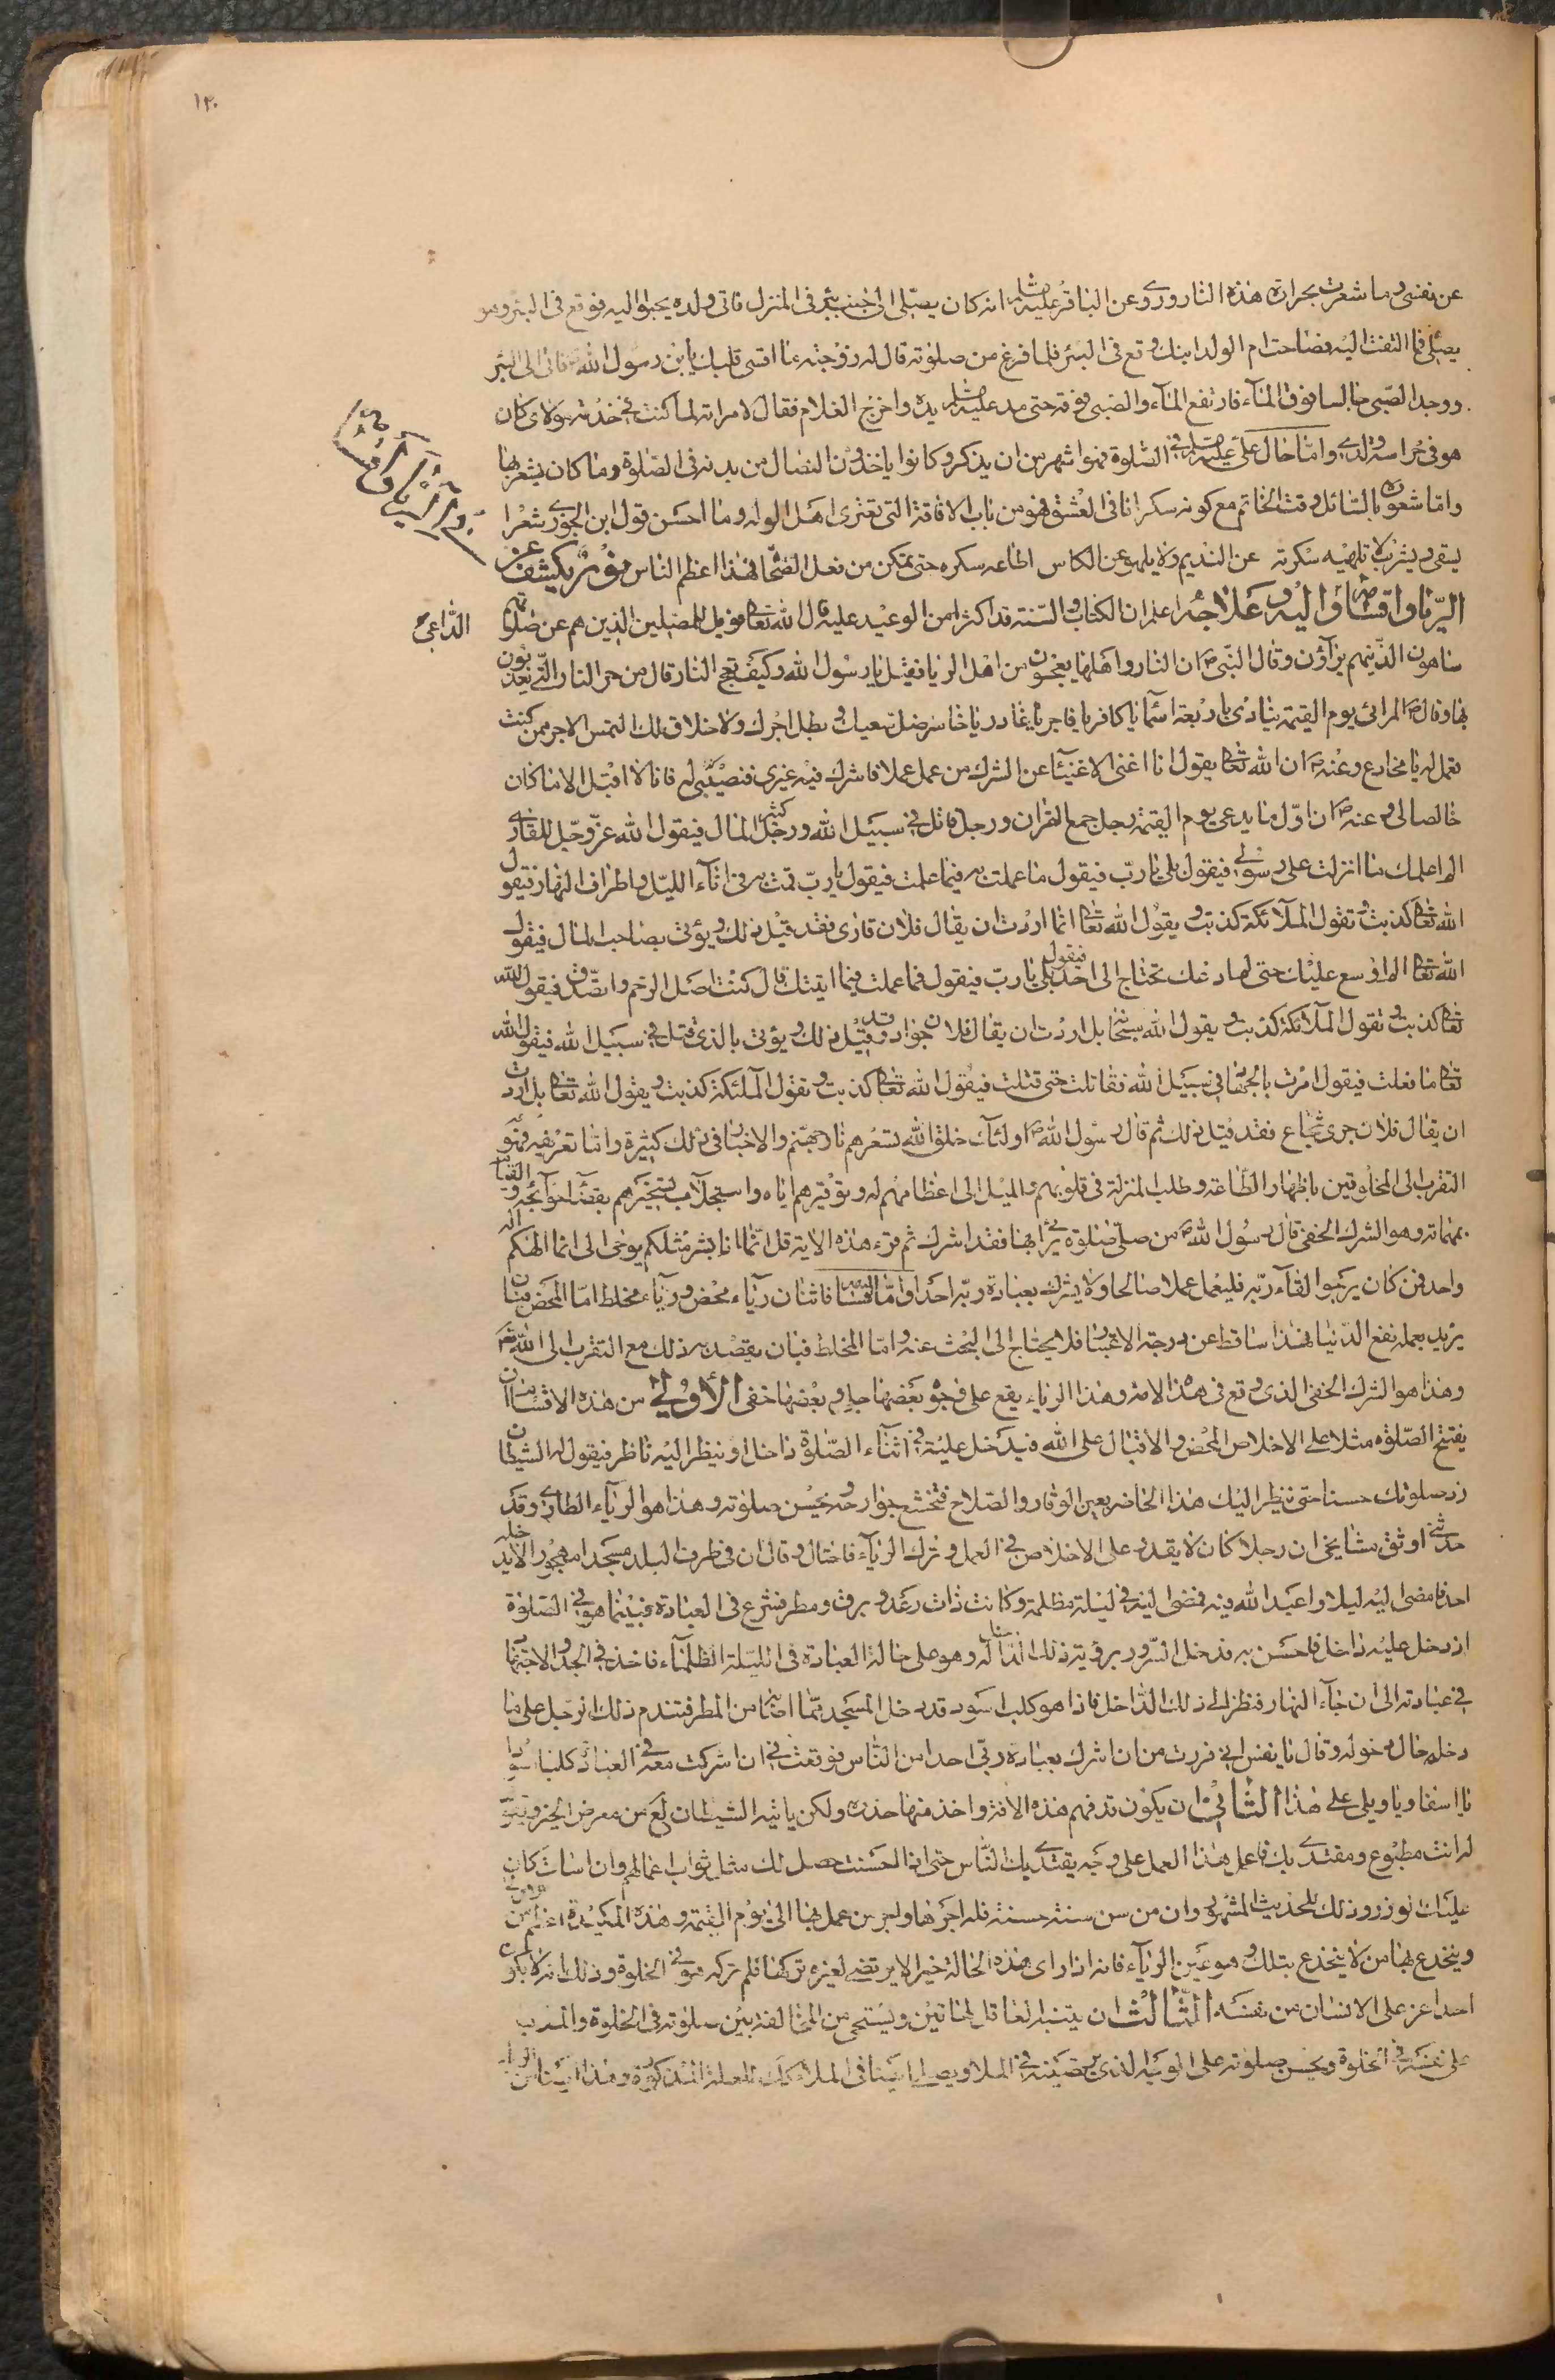 ١٣٠
عن نفسى وما شعرت بحرارة هذه النار وروى عن الباقر عليه السلام انه كان يصلى الى جنب بئر فى المنزل فاتى ولده يحبوا اليه فوقع فى البئر وهو
يصلى فما التفت اليه فصاحت ام الولد ابنك وقع فى البئر فلما فرغ من صلوته قال له زوجته ما اقسى قلبك يا بن رسول الله فاتى الى البئر
ووجد الصبى جالسا فوق الماء فارتفع الماء والصبى فوقه حتى مد عليه السلام يده واخرج الغلام فقال لامراته لما كنت فى خدمة مولاى كان
هو فى حراسة ولدى واما حال على عليه السلام فى الصلوة فهو اشهر من ان يذكر وكانوا ياخذون النصال من بدنه فى الصلوة وما كان يشعر بها
واما شعوره بالسائل وقت الخاتم مع كونه سكرانا فى العشق فهو من باب الافاقة التى تعترى اهل الوله وما احسن قول ابن الجوزى شعرا
يسقى ويشرب لا تلهيه سكرته عن النديم ولا يلهو عن الكاس اطاعه سكره حتى تمكن من فعل الصحا فهذا اعظم الناس نور يكشف عن
الريا واقسامه والداعى اليه وعلاجه اعلم ان الكتاب والسنة قد اكثرا من الوعيد عليه قال الله تعالى فويل للمصلين الذين هم عن صلوتهم
ساهون الذينهم يراؤن وقال النبى ص ان النار واهلها يعجون من اهل الريا فقيل يا رسول الله وكيف تعج النار قال من حر النار التى يعذبون
بها وقال ص المرائى يوم القيمة ينادى باربعة اسماء يا كافر يا فاجر يا غادر يا خاسر ضل سعيك وبطل اجرك ولا خلاق لك التمس الاجر ممن كنت
تعمل له يا مخادع وعنه ص ان الله تعالى يقول انا اغنى الاغنياء عن الشرك من عمل عملا فاشرك فيه غيرى فنصيبى له فانا لا اقبل الا ما كان
خالصا لى وعنه ص ان اول ما يدعى يوم القيمة رجل جمع القران ورجل قاتل فى سبيل الله ورجل كثير المال فيقول الله عز وجل للقارى
الم اعلمك ما انزلت على رسولى فيقول بلى يا رب فيقول ما عملت به فيما علمت فيقول يا رب قمت به فى اناء الليل واطراف النهار فيقول
الله تعالى كذبت وتقول الملائكة كذبت ويقول الله تعالى انما اردت ان يقال فلان قارى فقد قيل ذلك ويؤتى بصاحب المال فيقول
الله تعالى الم اوسع عليك حتى لم ادعك تحتاج الى احد فيقول بلى يا رب فيقول فما عملت فيما اتيتك قال كنت اصل الرحم واتصدق فيقول الله
تعالى كذبت وتقول الملائكة كذبت ويقول الله سبحانه بل اردت ان يقال فلان جواد وقد قيل ذلك ويؤتى بالذى قتل فى سبيل الله فيقول الله
تعالى ما فعلت فيقول امرت بالجهاد فى سبيل الله فقاتلت حتى قتلت فيقول الله تعالى كذبت وتقول الملئكة كذبت ويقول الله تعالى بل اردت
ان يقال فلان جرى شجاع فقد قيل ذلك ثم قال رسول الله ص اولئك خلق الله تسعر بهم نار جهنم والاخبار فى ذلك كثيرة واما تعريفه فهو
التقرب الى المخلوقين باظهار الطاعة وطلب المنزلة فى قلوبهم والميل الى اعظامهم له وتوقيرهم اياه واستجلاب تسخيرهم بقضاء حوائجه والقيام
بمهماته وهو الشرك الخفى قال رسول الله ص من صلى صلوة يرائى بها فقد اشرك ثم قرء هذه الاية قل انما انا بشر مثلكم يوحى الى انما الهكم اله
واحد فمن كان يرجوا لقاء ربه فليعمل عملا صالحا ولا يشرك بعبادة ربه احدا واما اقسامه فاثنان رياء محض ورياء مخلط اما المحض فبان
يريد بعمله نفع الدنيا فهذا ساقط عن درجة الاعتبار فلا يحتاج الى البحث عنه واما المخلط فبان يقصد به ذلك مع التقرب الى الله تعالى
وهذا هو الشرك الخفى الذى وقع فى هذا الامة وهذا الرياء يقع على وجوه بعضها جلى وبعضها خفى الاولى من هذه الاقسام ان
يفتتح الصلوة مثلا على الاخلاص المحض والاقبال على الله فيدخل عليه فى اثناء الصلوة داخل او ينظر اليه ناظر فيقول له الشيطان
زد صلوتك حسنا حتى ينظر اليك هذا الحاضر بعين الوقار والصلاح فتخشع جوارحه ويحسن صلوته وهذا هو الرياء الطارى وقد
حدثنى اوثق مشايخى ان رجلا كان لا يقدر على الاخلاص فى العمل وترك الرياء فاحتال وقال ان فى طرف البلد مسجدا مهجورا لا يدخله
احد فامضى اليه ليلا واعبد الله فيه فمضى اليه فى ليلة مظلمة وكانت ذات رعد وبرق ومطر فشرع فى العبادة فبينما هو فى الصلوة
اذ دخل عليه داخل فاحس به فدخل السرور برؤية ذلك الداخل له وهو على حالة العبادة فى الليلة الظلماء فاخذ فى الجد والاجتهاد
فى عبادته الى ان جاء النهار فنظر الى ذلك الداخل فاذا هو كلب اسود قد دخل المسجد مما اصابه من المطر فتندم ذلك الرجل على ما
دخله حال دخوله وقال يا نفس انى فررت من ان اشرك بعبادة ربى احدا من الناس فوقعت فى ان اشركت معه فى العبادة كلبا اسودا
يا اسفا ويا ويلى على هذا الثانى ان يكون قد فهم هذه الافة واخذ منها حذره ولكن ياتيه الشيطان من معرض الخير ويقول
له انت متبوع ومقتدى بك فاعمل هذا العمل على وجه يقتدى بك الناس حتى اذا احسنت حصل لك مثل ثواب اعمالهم وان اسات كان
عليك الوزر وذلك للحديث المشهور وان من سن سنة حسنة فله اجرها واجر من عمل بها الى يوم القيمة وهذه المكيدة اعظم من
وينخدع بها من لا ينخدع بتلك وهو عين الرياء فانه اذا راى هذه الحالة خيرا لا يرتضى لغيره تركها فلم تركه هو فى الخلوة وذلك انه لا يكون
احد اعز على الانسان من نفسه الثالث ان يتنبه العاقل لهاتين ويستحى من المخالفة بين صلوته فى الخلوة والملا
على نفسه فى الخلوة ويحسن صلوته على الوجه الذى يرتضيه فى الملا ويصلى ايضا فى الملا كذلك للعلة المذكورة وهذا ايضا من الرياء